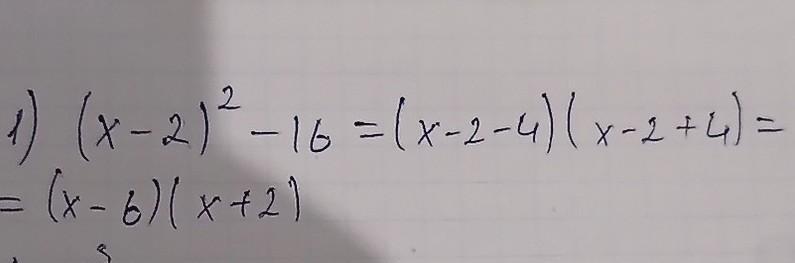 1) (x-2)² - 16 = (x-2-4)(x-2+4) =
= (x-6)(x+2)